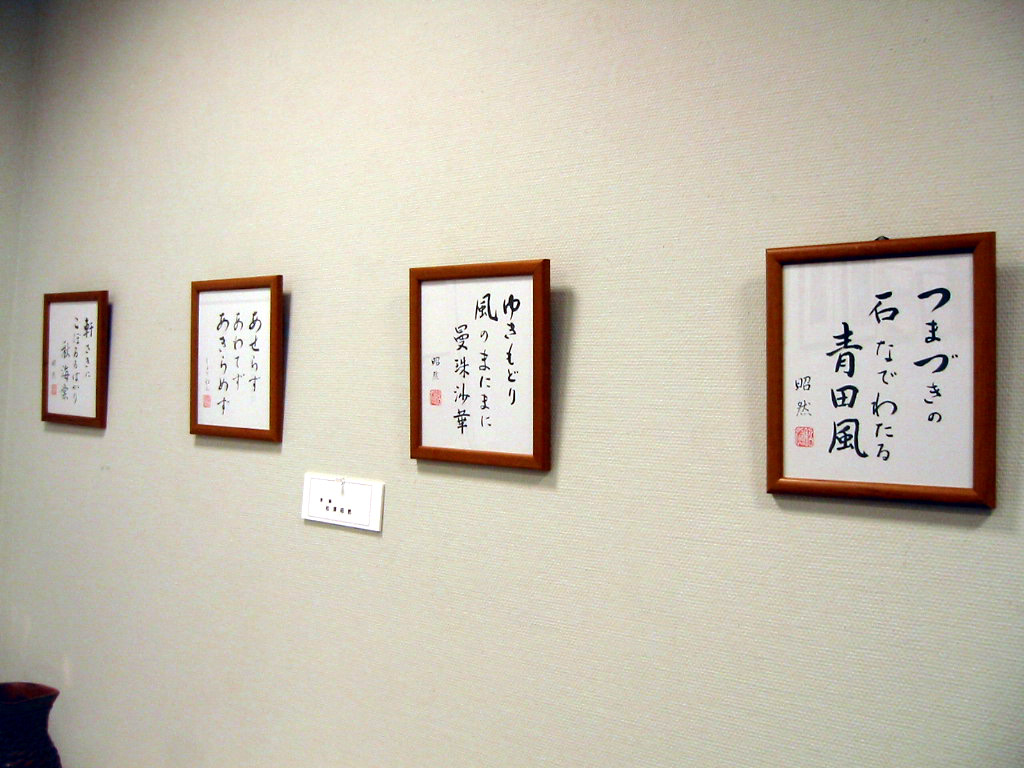 つまづきの
石なでわたる
青田風
昭然
ゆきもどり
風のまにまに
曼珠沙華
昭然
あせらず
あわてず
あきらめず
軒さきに
こぼるるばかり
秋海棠
昭然